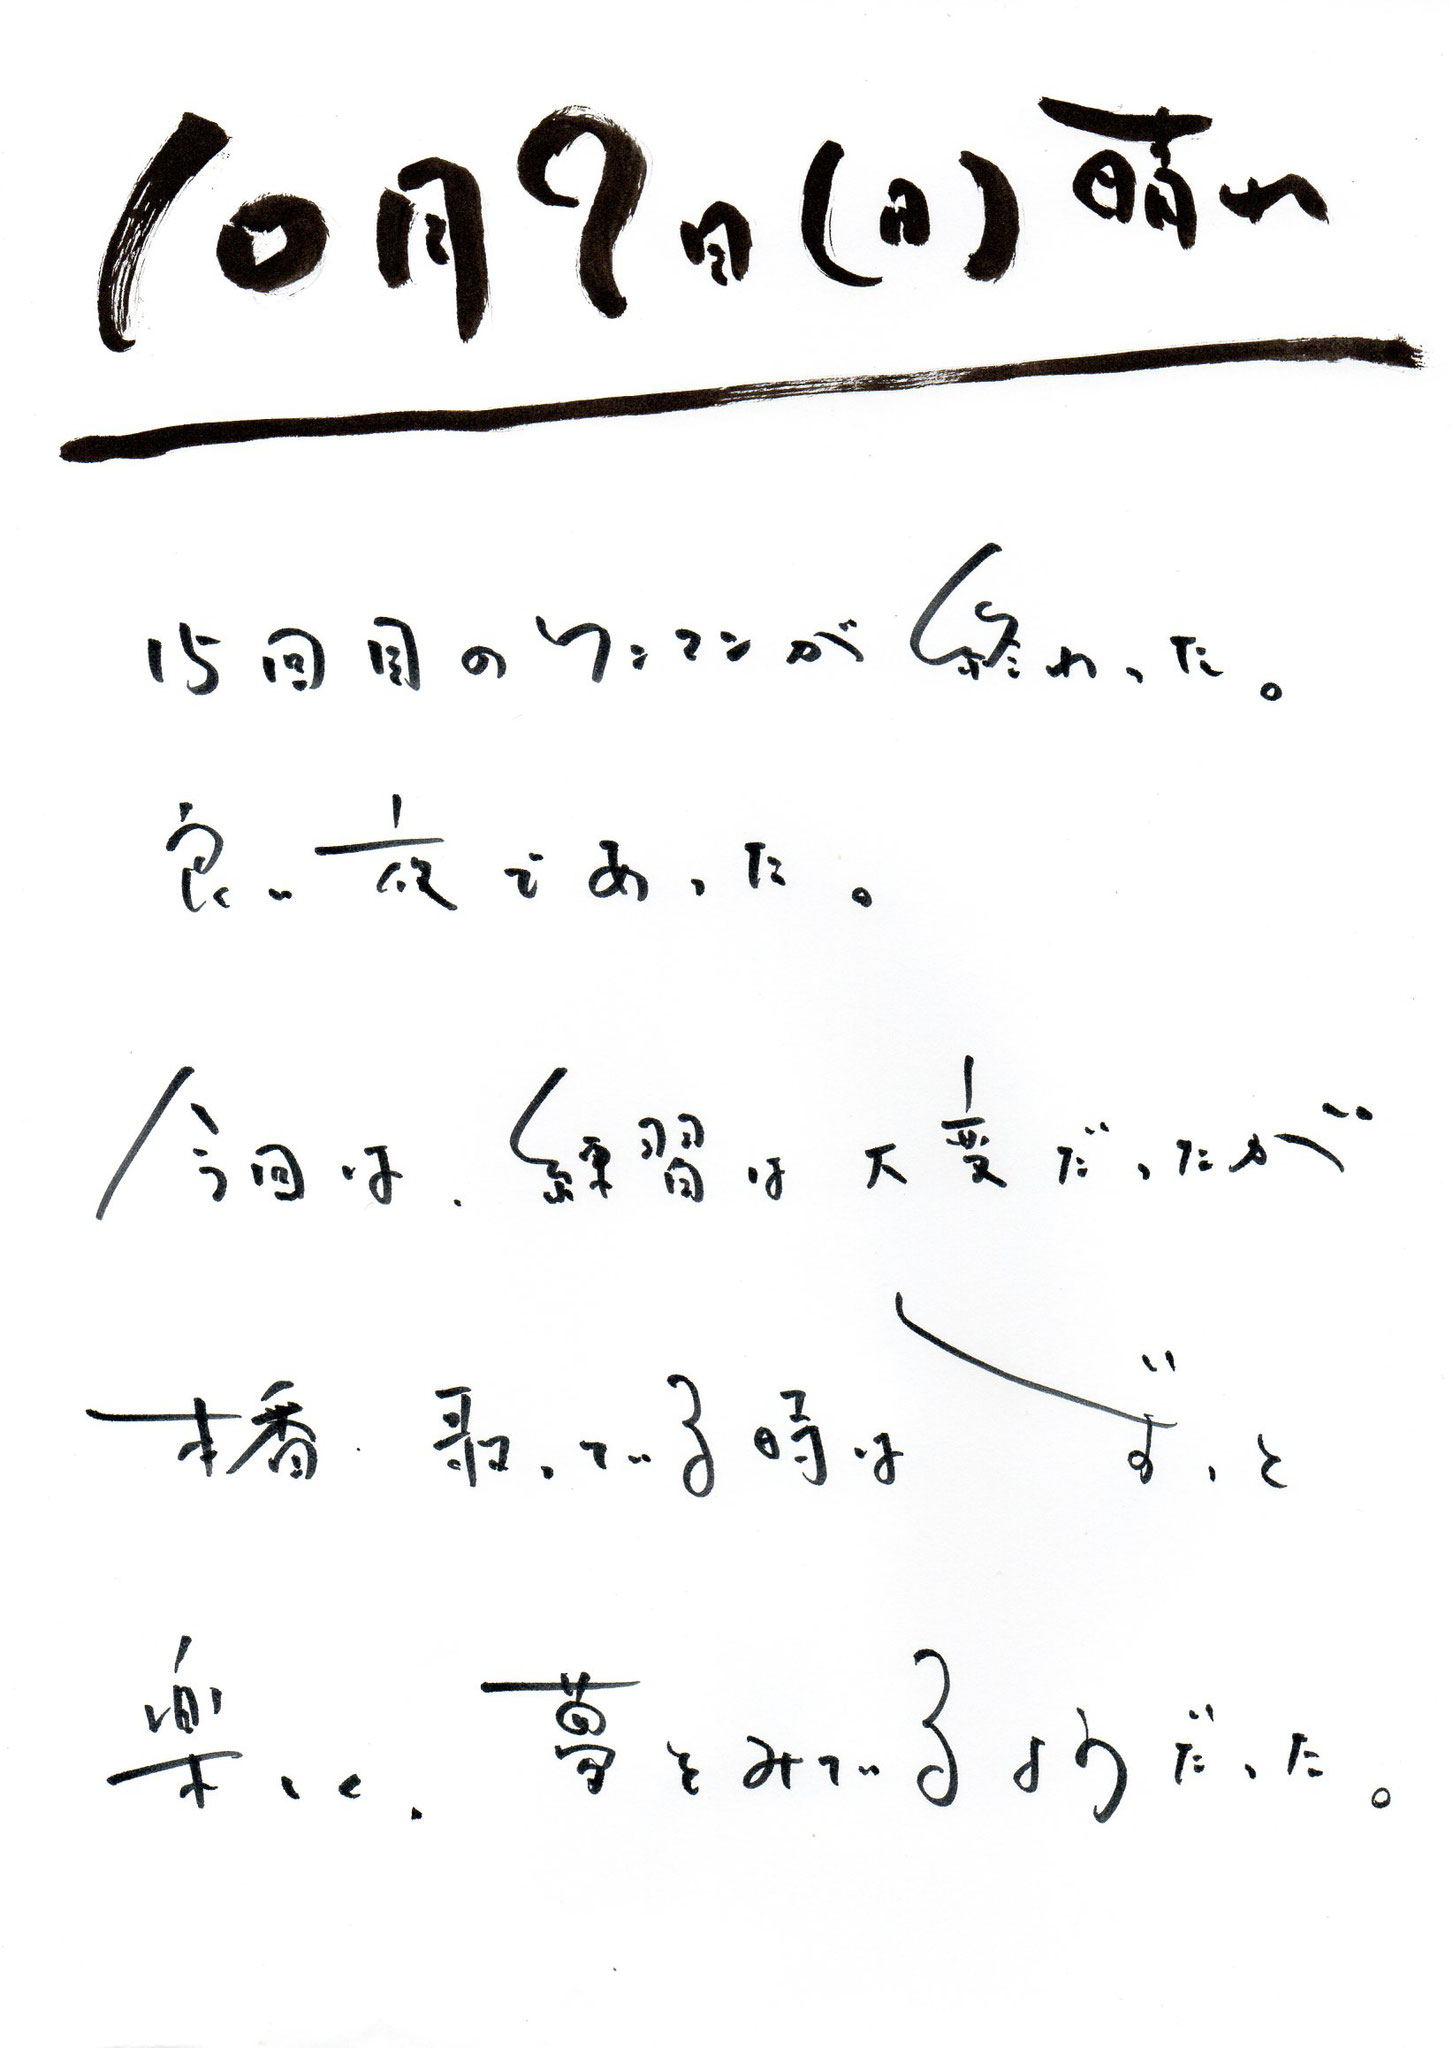 10月9日(日)晴れ
15回目のワンマンが終わった。
良い夜であった。
今回は、練習は大変だったが
本番、歌っている時は ずっと
楽しく、夢をみているようだった。